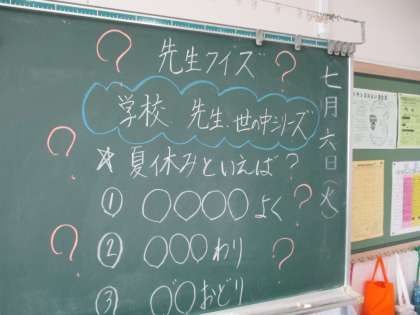 七月六日(火)
先生クイズ
学校 先生、世の中シリーズ
☆夏休みといえば?
① ○○○○よく
② ○○○わり
③ ○○おどり